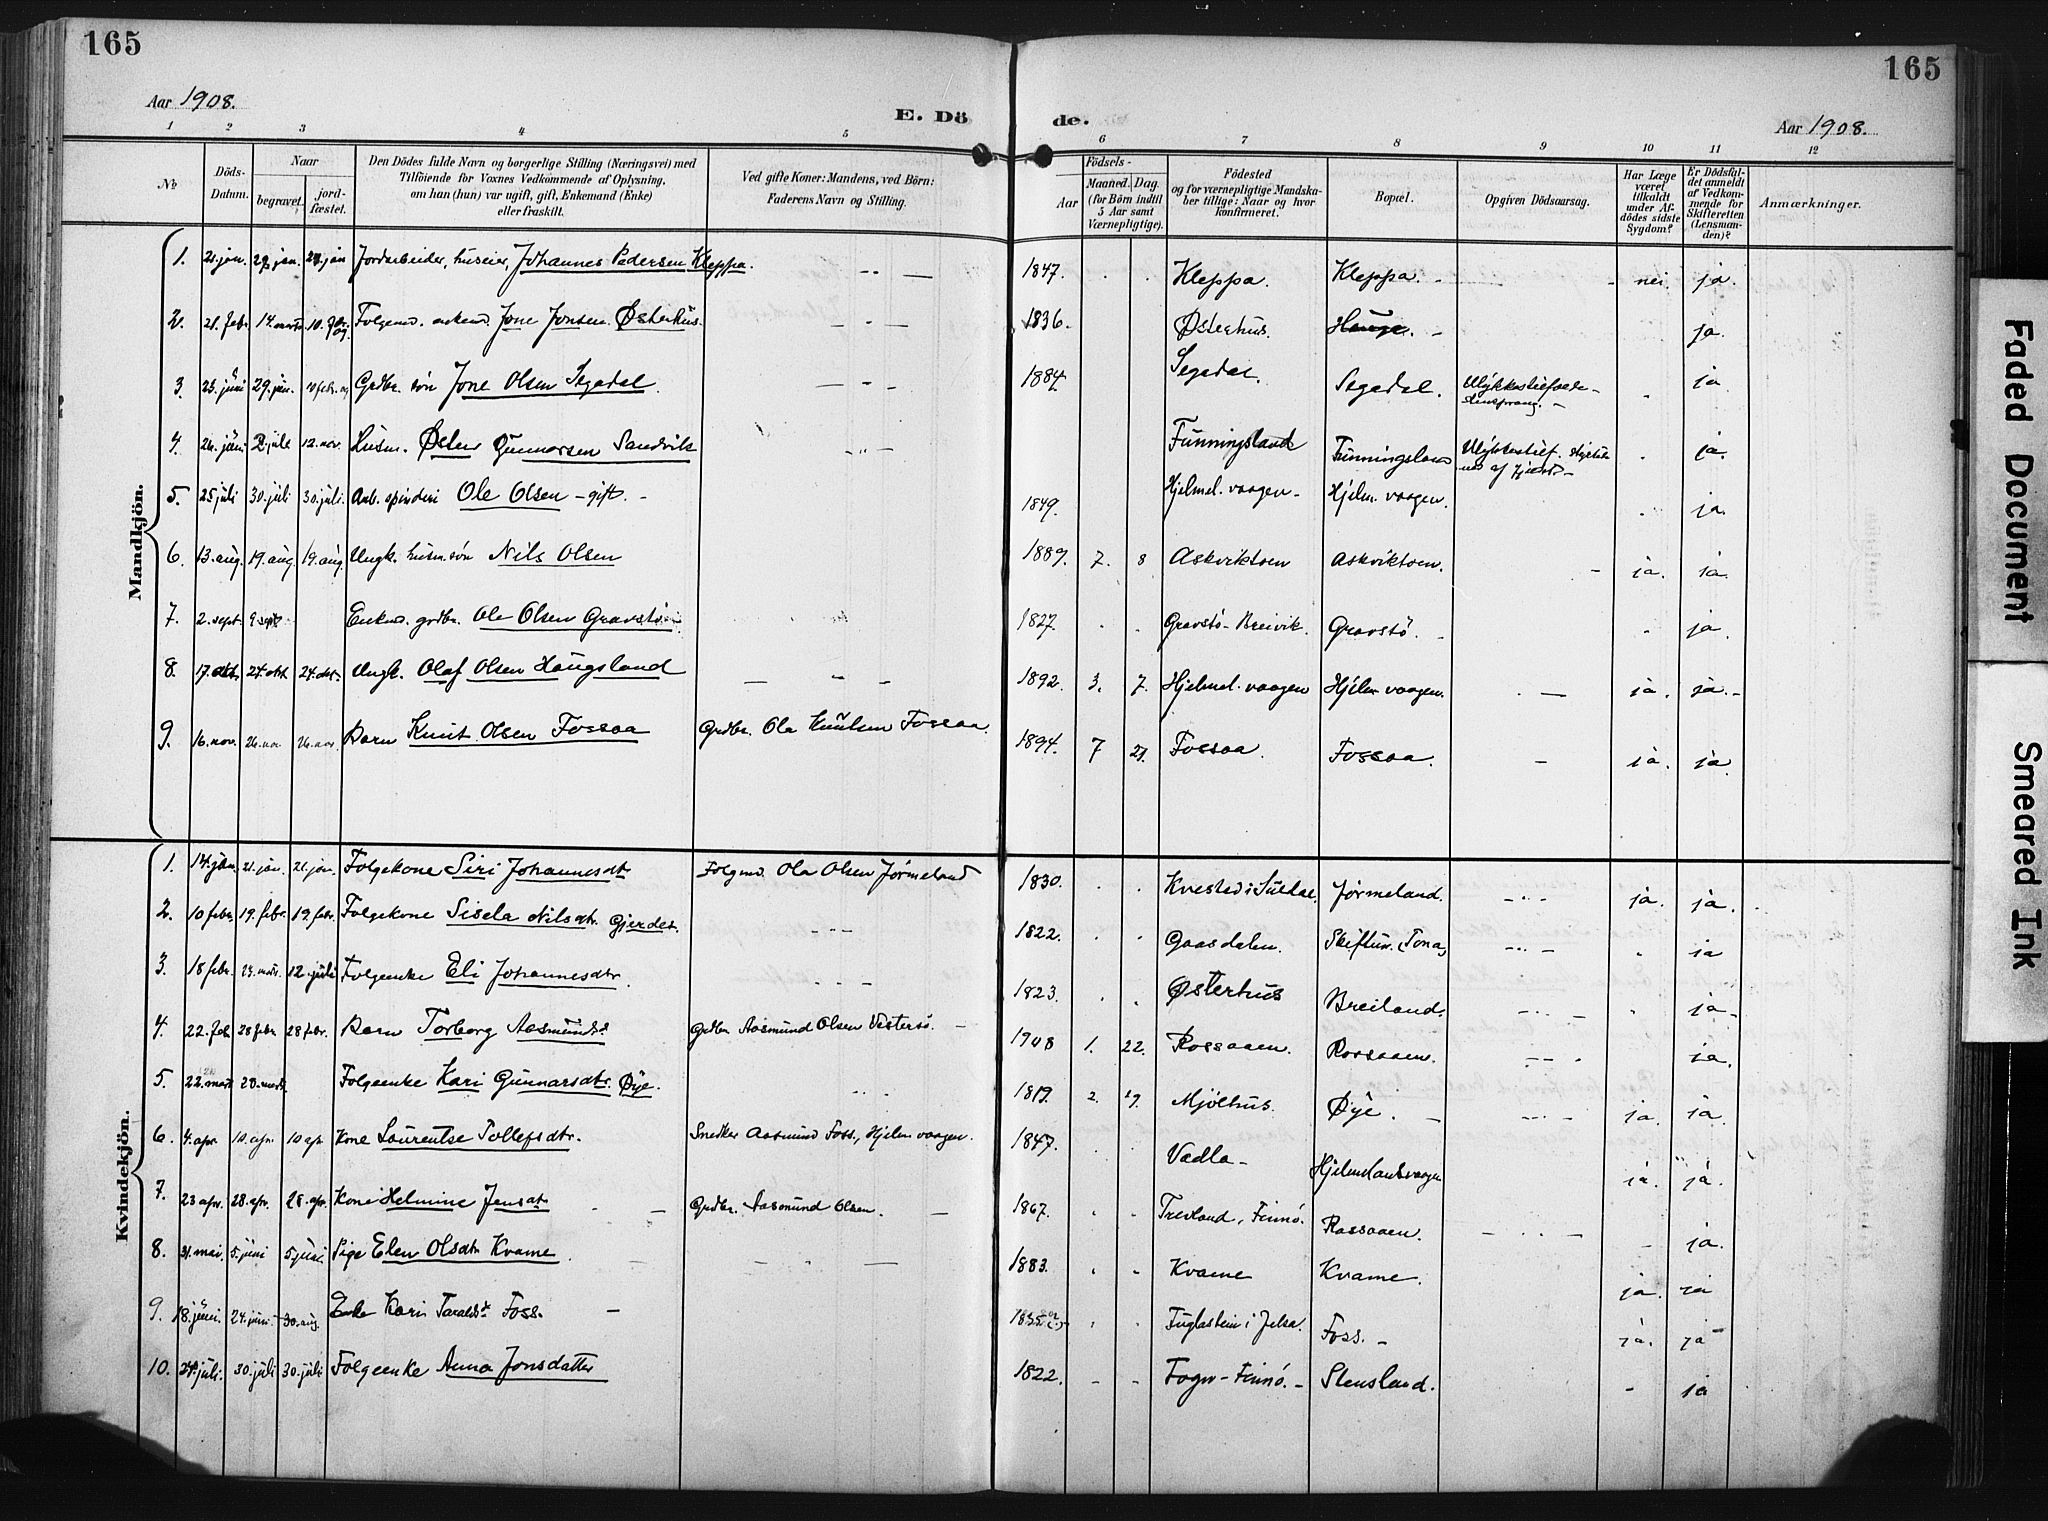 165
165
Aar 1908.
E. Dö de.
Aar 1908.
1 2 3 4 5 6 7 8 9 10 11 12
No
Döds-Datum.
Naar
begravet.
jord-fæstet.
Den Dödes fulde Navn og borgerlige Stilling (Næringsvei) med
Tilföiende for Voxnes Vedkommende af Oplysning,
om han (hun) var ugift, gift, Enkemand (Enke)
eller fraskilt.
Ved gifte Koner: Mandens, ved Börn:
Faderens Navn og Stilling.
Födsels-
Aar
Maaned.
Dag.
(for Börn indtil
5 Aar samt
Værnepligtige).
Födested
og for værnepligtige Mandska-
ber tillige: Naar og hvor
konfirmeret.
Bopæl.
Opgiven Dödsaarsag.
Har Læge
været
tilkaldt
under Af-
dödes sidste
Sygdom?
Er Dödsfal-
det anmeldt
af Vedkom-
mende for
Skifteretten
(Lensman-
den)?
Anmærkninger.
Mandkjön.
1. 21. jan. jan. jan Jordarbeider, huseier, Johannes Pedersen Kleppa. 1847. Kleppa. Kleppa. nei. ja.
2. 21. febr. 14. marts Folgemd. enkemd. Jone Jonsen Østerhus. 1836. Østerhus. Hauge. ja.
3 23. juni 29. jun. Grdbr. søn Jone Olsen Segadal. 1884 Segadal. Segadal. ja
4. 26. juni 2 juli 12. nov. Husm. Østen Gunnarsen Sandvik Funningsland ja.
5. 25 juli 30. juli 30. juli. Arb. spinderi Ole Olsen - gift. - 1849. Hjelmel. vaagen - Hjelm. vaagen. ja.
6. 13. aug. 19. aug. 19. aug. Ungk. husm. søn Nils Olsen 1889. 7. 8 Askviktoen Askviktoen. ja. ja.
7. 2. sept. 9 sept. Enkmd. grdbr. Ole Olsen Gravstø 1827. Gravstø - Breivik. Gravstø. ja.
8. 17. okt. 24. okt. 24. okt. Ungk. Olaf Olsen Haugsland 1892. 3. 7. Hjelmel. vaagen Hjelm. vaagen. ja. ja. -
9. 16. nov. 26. nov. 26. nov. Barn Knut Olsen Fossaa Grdbr. Ola Knutsen Fossaa. 1894. 7 21. Fossaa. Fossaa. ja. ja.
Kvindekjön.
1. 14. jan. 21. jan. 21. jan. Folgekone Siri Johannesdtr Folgmd. Ola Olsen Jørmeland 1830. Kvestad i Suldal. Jørmeland. ja. ja.
2. 10 febr. 19. febr. 19. febr. Folgekone Sisela Nilsdtr. Gjerdet. 1822. Gaasdalen. Skiftun. (Tona) ja
3. 18 febr. 12. juli Folgeenke Eli Johannesdtr. 1823. Østerhus Breiland. ja.
4. 22. feb 28 febr. 28 febr. Barn Torborg Aasmundsd Grdbr. Aasmund Olsen Vestersø. 1908 1. 22. Rossaaen. Rossaaen. ja.
5. 22. mars Folgeenke Kari Gunnarsdtr. Øye. 1819. 2. 19. Mjølhus. Øye. ja. ja.
6. 4. apr. 10. apr. 10 apr. Kone Laurentse Tollefsdtr. Snedker Aasmund Foss, Hjelm. vaagen. 1847. Vadla - Hjelmelandsvaagen ja. ja.
7. 23 apr. 28. apr. 28. apr. Kone Helmine Jensdtr Grdbr. Aasmund Olsen. 1867. Trevland, Finnø. Rossaaen. ja.
8. 31. mai. 5. juni 5 juni Pige Elen Olsdtr Kvame. 1883. Kvame Kvame. ja. ja
9. 18. juni. 24. juni. 30. aug. Enke Kari Taraldsd Foss. Fuglastein i Jelsa. Foss. - ja. ja
10. juli. 30. juli 30. juli Folgeenke Anna Jonsdatter 1822. Fogn - Finnø. - Stensland. ja
Faded Document
Smeared Ink